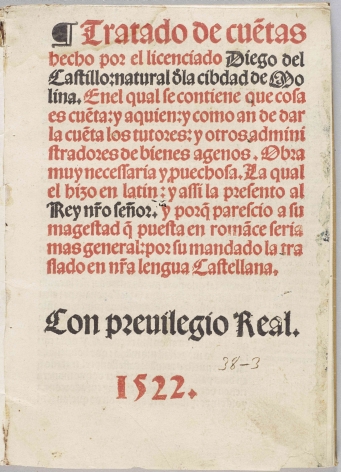 ¶ Tratado de cuẽtas
hecho por el licenciado Diego del
Castillo: natural d̓la cibdad de Mo
lina. Enel qual se contiene que cosa
es cuẽta: y aquien: y como an de dar
la cuẽta los tutores: y otros admini
stradores de bienes agenos. Obra
muy necessaria y ꝓuechosa. La qual
el hizo en latin: y assi la presento al
Rey nr̃o señor. y porq̃ parescio a su
magestad q̃ puesta en romãce seria
mas general: por su mandado la tra
slado en nr̃a lengua Castellana.
Con preuilegio Real.
38-3
1522.